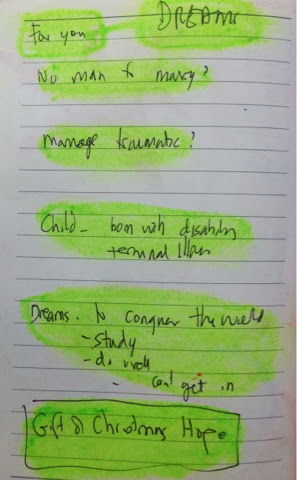 For you DREAMS
No man to marry?
Marriage traumatic?
Child - born with disability
terminal illness
Dreams. to conquer the world
- study
- do well
- can't get in
Gift of Christmas Hope